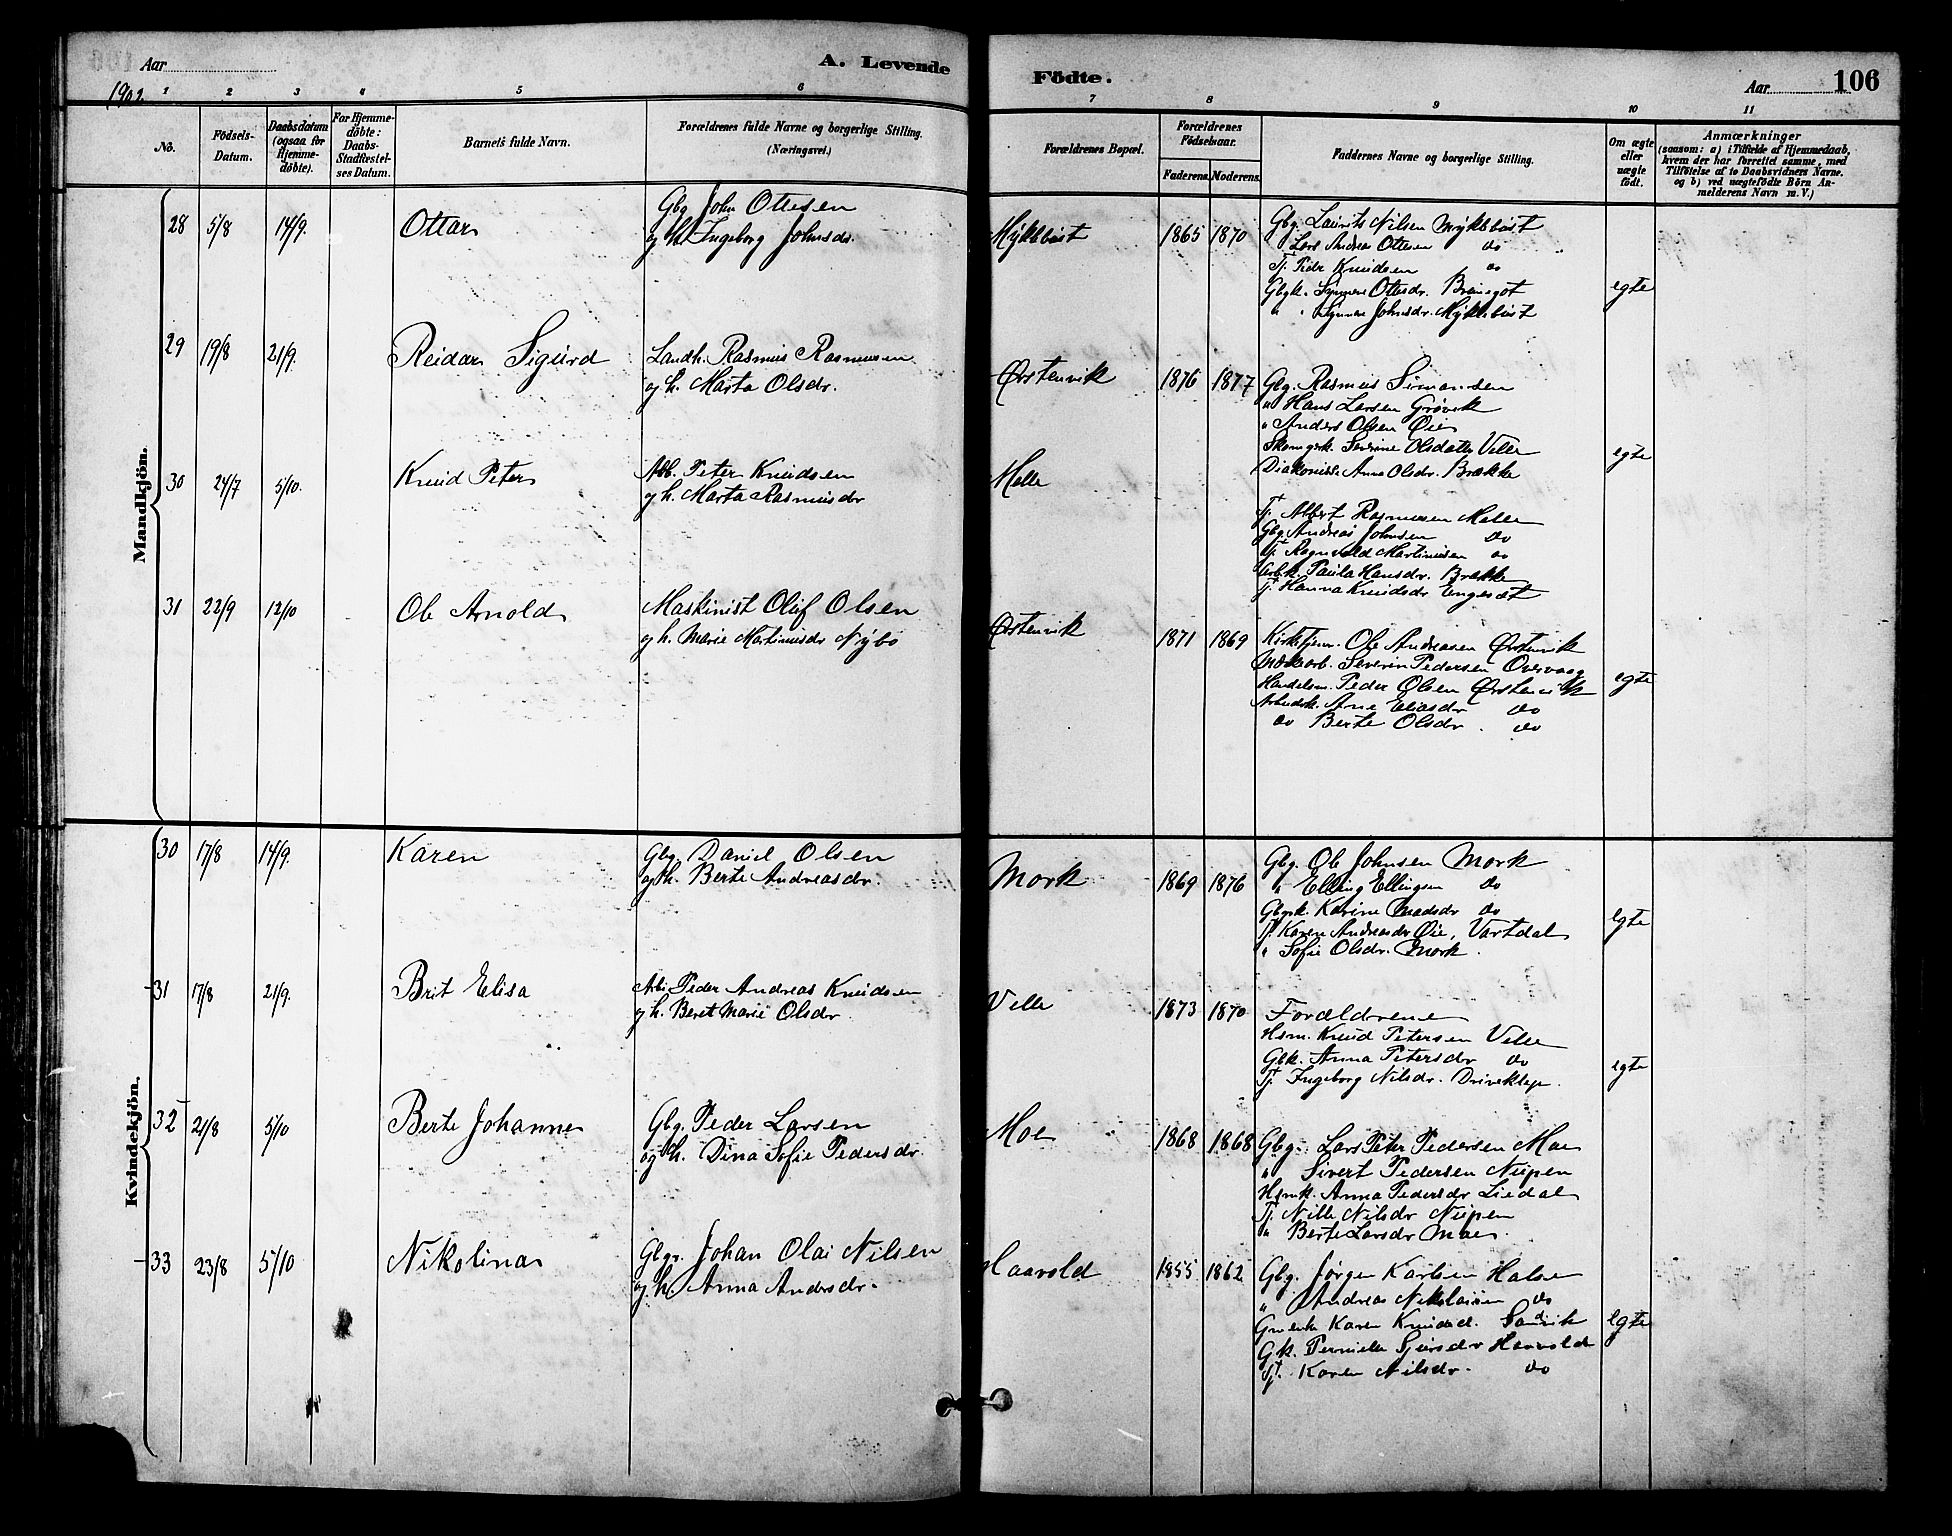 Aar
1902.
A. Levende
Födte.
Aar
106
1 2 3 4 5 6 7 8 9 10 11
No.
Födsels-Datum.
Daabsdatum (ogsaa for Hjemme-döbte).
For Hjemme-döbte: Daabs-Stadfestel-ses Datum.
Barnets fulde Navn.
Forældrenes fulde Navne og borgerlige Stilling.
(Næringsvei.)
Forældrenes Bopæl.
Forældrenes Födselsaar.
Faderens. Moderens.
Faddernes Navne og borgerlige Stilling.
Om ægte eller uægte födt.
Anmærkninger
(saasom: a) i Tilfælde af Hjemmedaab, hvem der har forrettet samme, med Tilföielse af to Daabsvidners Navne. og b) ved uægtefödte Börn An-melderens Navn m. V.)
Mandkjön.
28 5/8 14/9. Ottar
Gbg. John Ottesen
og h. Ingeborg Johnsdr.
Myklebust 1865 1870
Gbg. Laurits Nilsen Myklebust
" Lars Andreas Ottesen do
Tj. Peder Knudsen do
Gbgk. Synnøve Ottesdr.
" Synnøve Johnsdr. Myklebust
egte
29 19/8 21/9. Reidar Sigurd
Landh. Rasmus Rasmussen
og h. Marta Olsdr.
Ørstenvik 1876 1877
Gbg. Rasmus Simonsen
" Hans Larsen Grøvik
" Anders Olsen Øie
Severine Olsdatter Velle
Diakonisse Anna Olsdr. Brække
egte
30 24/7 5/10. Knud Peter
Arb. Peter Knudsen
og h. Marta Rasmusdr
Melle
Tj. Albert Rasmussen Melle
Gbg. Andreas Johnsen do
Tj. Ragnvald Martinusen do
Arbk. Paula Hansdr. Brække
Tj. Hanna Knudsdr Engeset
31 22/9 12/10 Ole Arnold
Maskinist Oluf Olsen
og h. Marie Martinusdr Nybø
Ørstenvik 1871 1869
Kirketjener. Ole Andreasen Ørstenvik
Severin Pedersen Overvaag
Handelsm. Peder Olsen Ørstenvik
Arbeidsk. Ane Eliasdr do
do Berte Olsdr. do
egte
Kvindekjön.
30 17/8 14/9. Karen
Gbg. Daniel Olsen
og h. Berte Andreasdr.
Mork 1869 1876
Gbg. Ole Johnsen Mork
" Elling Ellingsen do
Gbgsk. Karine Madsdr do
Tj. Karen Andreasdr Øie, Vartdal
" Sofie Olsdr. Mork
egte
31 17/8 21/9. Brit Elisa
Arb. Peder Andreas Knudsen
og h. Beret Marie Olsdr
Velle 1873 1870
Forældrene
Hsm. Knud Petersen Velle
Gbk. Anna Petersdr do
Tj. Ingeborg Nilsdr. Driveklep.
egte
32 21/8 5/10 Berte Johanne
Gbg. Peder Larsen
og h. Dina Sofie Pedersdr.
Moe 1868 1868
Gbg. Lars Peter Pedersen Moe
" Sivert Pedersen Nupen
Hsmk. Anna Pedersdr Liedal
Tj. Nille Nilsdr Nupen
" Berte Larsdr Moe.
33 23/8 5/10 Nikolina
Gbgr. Johan Olai Nilsen
og h. Anna Andersdr.
Haavold 1855 1862
Gbg. Jørgen Karlsen Halse
" Andreas Nikolaisen do
Karen Knudsd. Sandvik
Gk. Pernille Sjursdr Haavold
Tj. Karen Nilsdr. do
egte